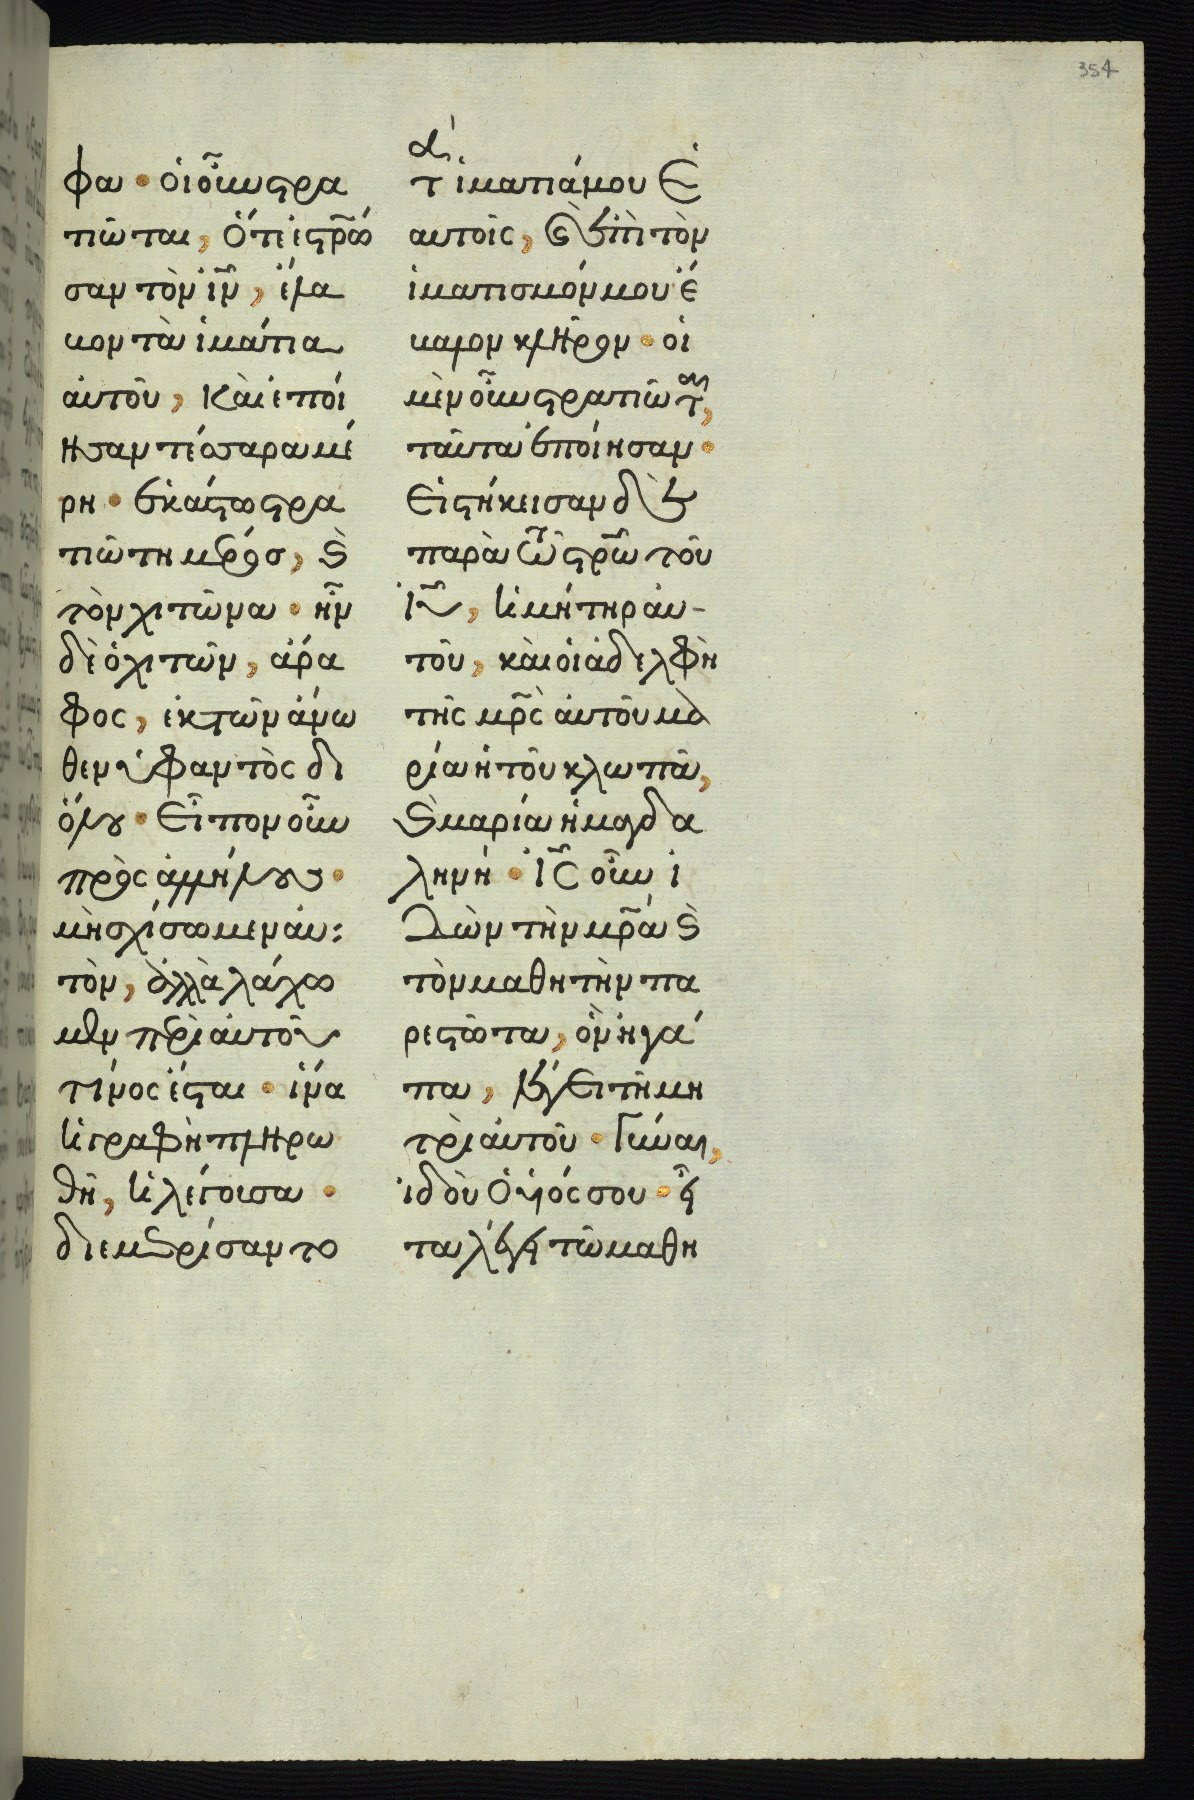 354
φα · οἱ οὖν στρα
τιῶται, ὅτι ἐστρῶ
σαν τὸν ἰν, ἔλα
βον τὰ ἱμάτια
αὐτοῦ, καὶ ἐποί
ησαν τέσσαρα μέ
ρη · ἑκάστω στρα
τιώτη μέρος, καὶ
τὸν χιτῶνα · ἦν
δὲ ὁ χιτὼν, ἄρα
φος, ἐκ τῶν ἄνω
θεν ὑφαντὸς δι
ὅλου · Εἶπον οὖν
πρὸς ἀλλήλους ·
μὴ σχίσωμεν αὐ
τὸν, ἀλλὰ λάχω
μεν περὶ αὐτοῦ
τίνος ἔσται · ἵνα
ἡ γραφὴ πληρω
θῆ, ἡ λέγουσα ·
διεμερίσαντο
τὰ ἱμάτιά μου ἑ
αυτοῖς, καὶ ἐπὶ τὸν
ἱματισμόν μου ἔ
βαλον κλῆρον · οἱ
μὲν οὖν στρατιῶται,
ταῦτα ἐποίησαν ·
Εἱστήκεισαν δὲ
παρὰ τῶ στρῶ τοῦ
ἰυ, ἡ μήτηρ αὐ-
τοῦ, καὶ οἱ ἀδελφὴ
τῆς μρς αὐτοῦ μα
ρία ἡ τοῦ κλωπᾶ,
καὶ μαρία ἡ μαγδα
ληνή · ἰς οὖν ἰ
δὼν τὴν μρα καὶ
τὸν μαθητὴν πα
ρεστῶτα, ὃν ἠγά
πα, λέγει τῆ μη
τρὶ αὐτοῦ · Γύναι,
ἰδοὺ ὁ υἱός σου · εἶ
τα λέγει τῶ μαθη